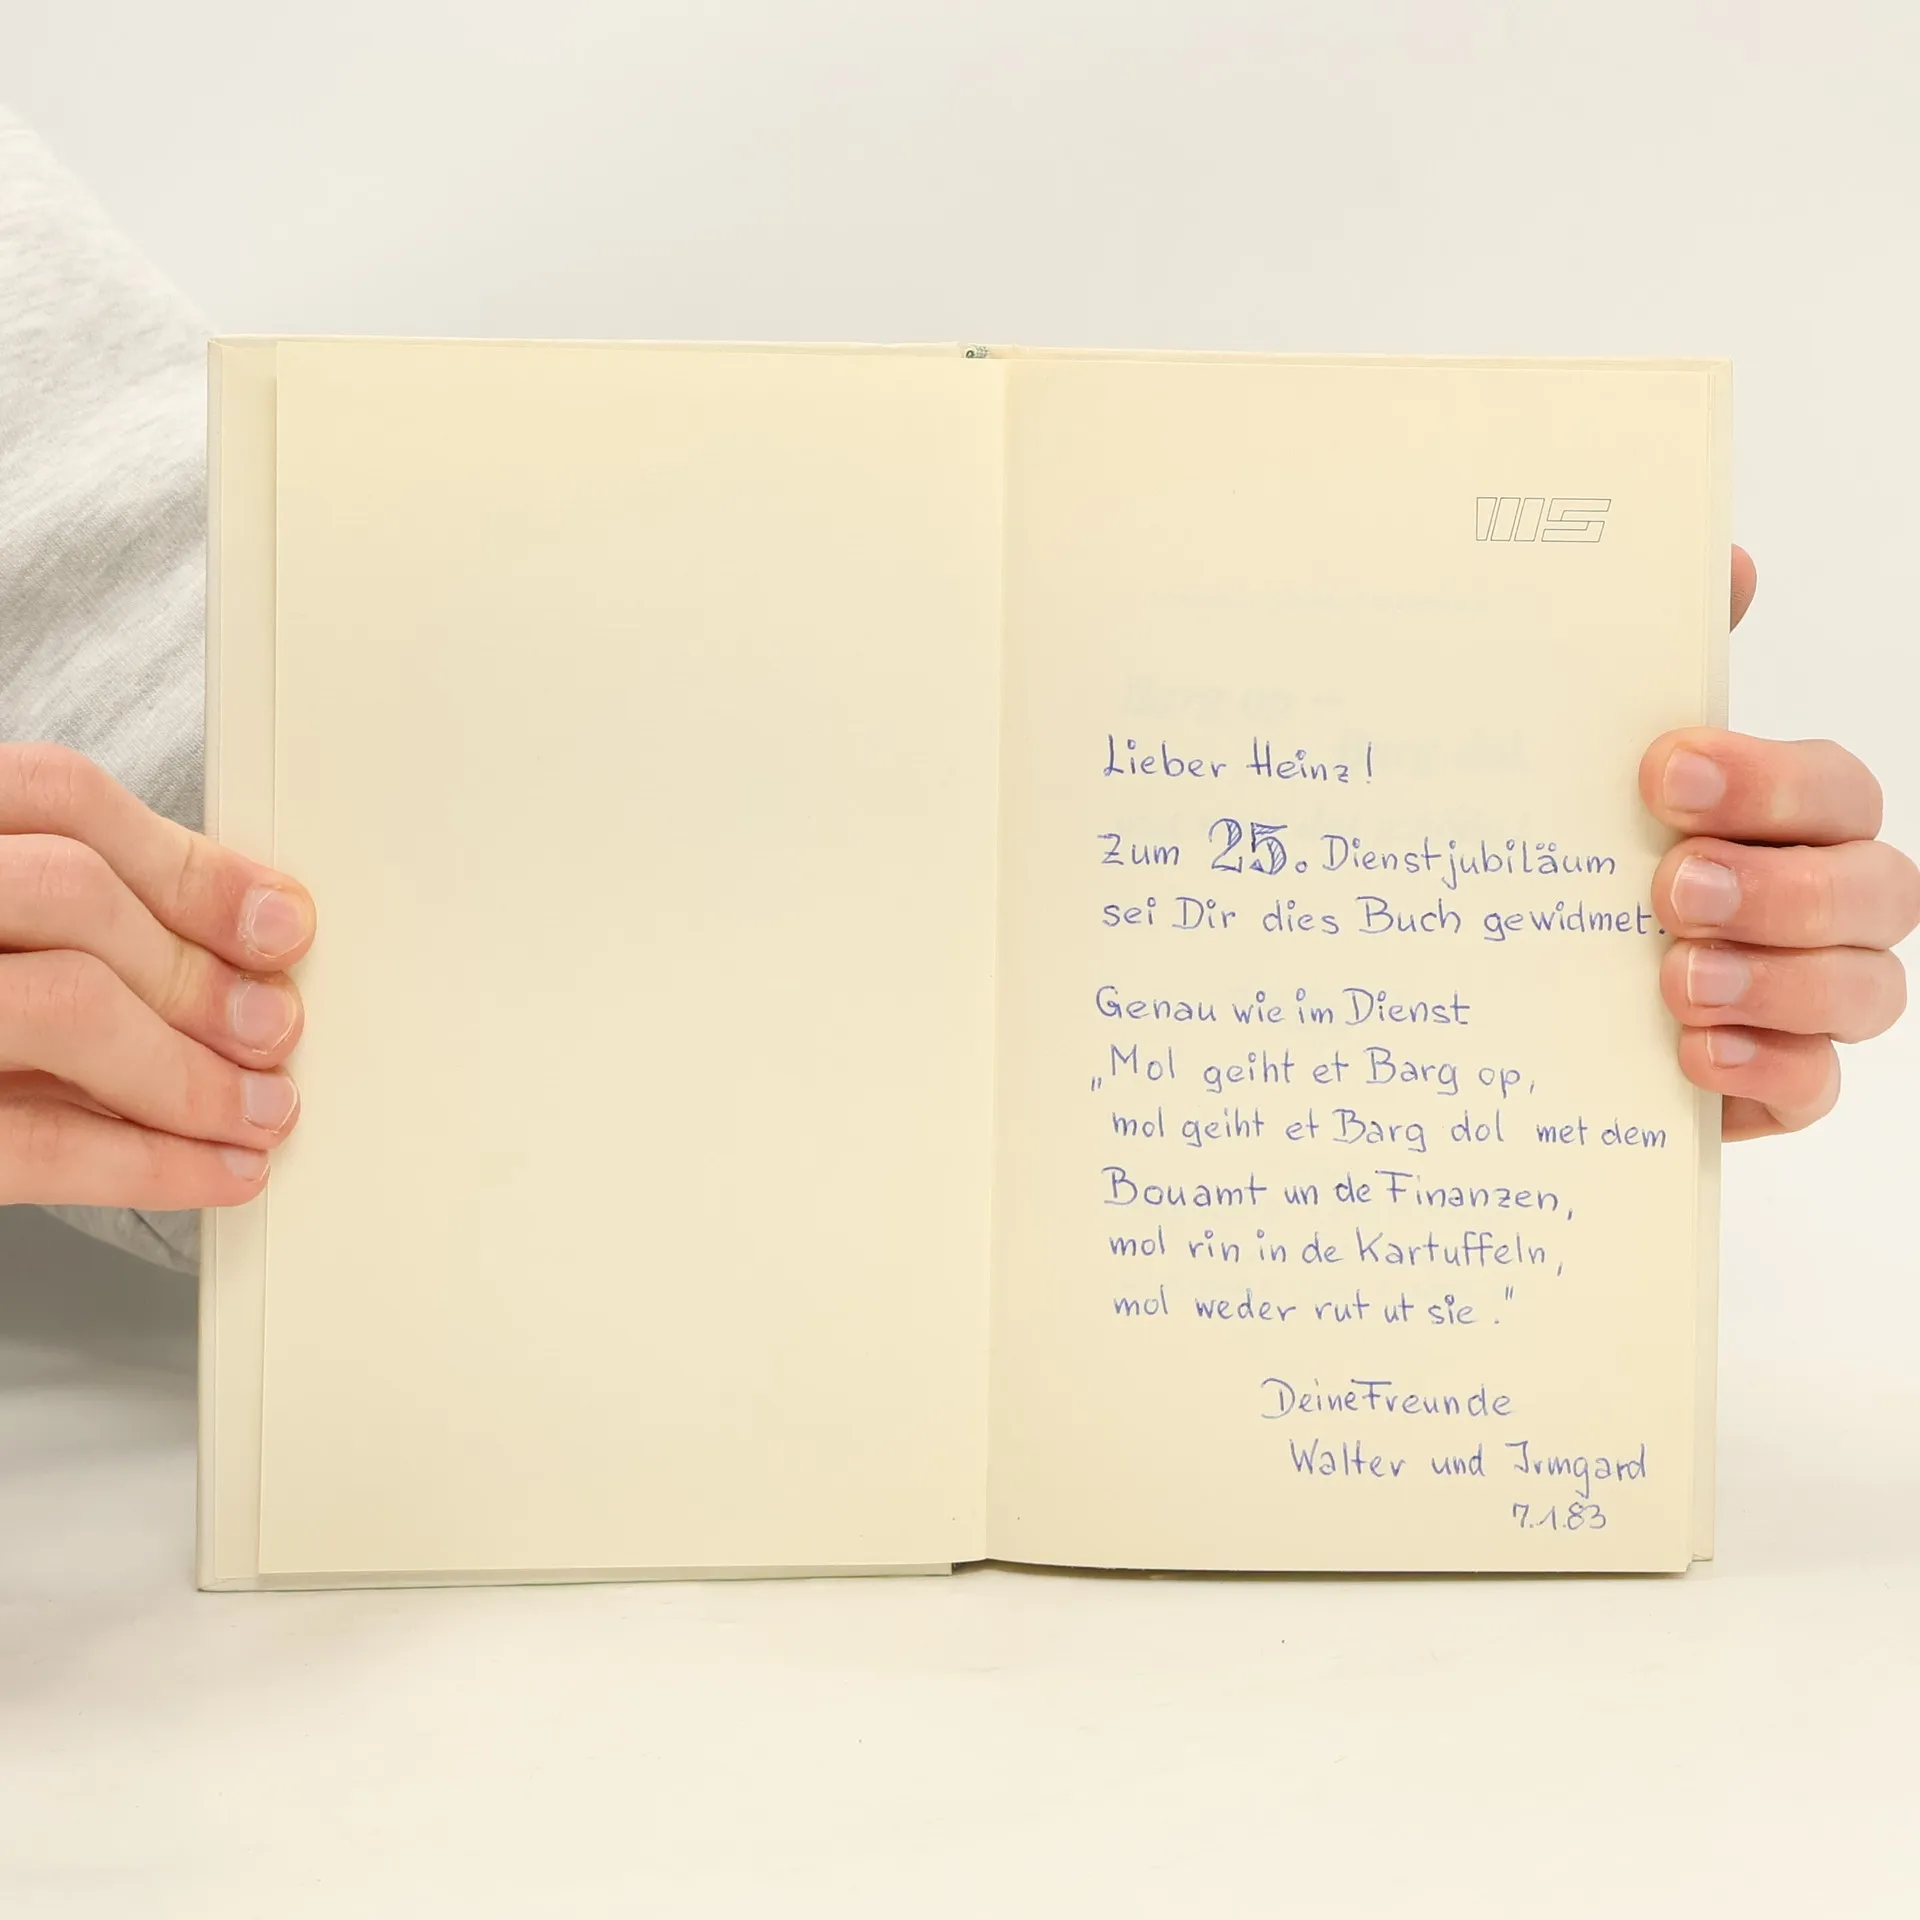 WS
Lieber Heinz!
Zum 25. Dienstjubiläum
sei Dir dies Buch gewidmet.
Genau wie im Dienst
„Mol geiht et Barg op,
mol geiht et Barg dol met dem
Bouamt un de Finanzen,
mol rin in de Kartuffeln,
mol weder rut ut sie."
Deine Freunde
Walter und Irmgard
7.1.83